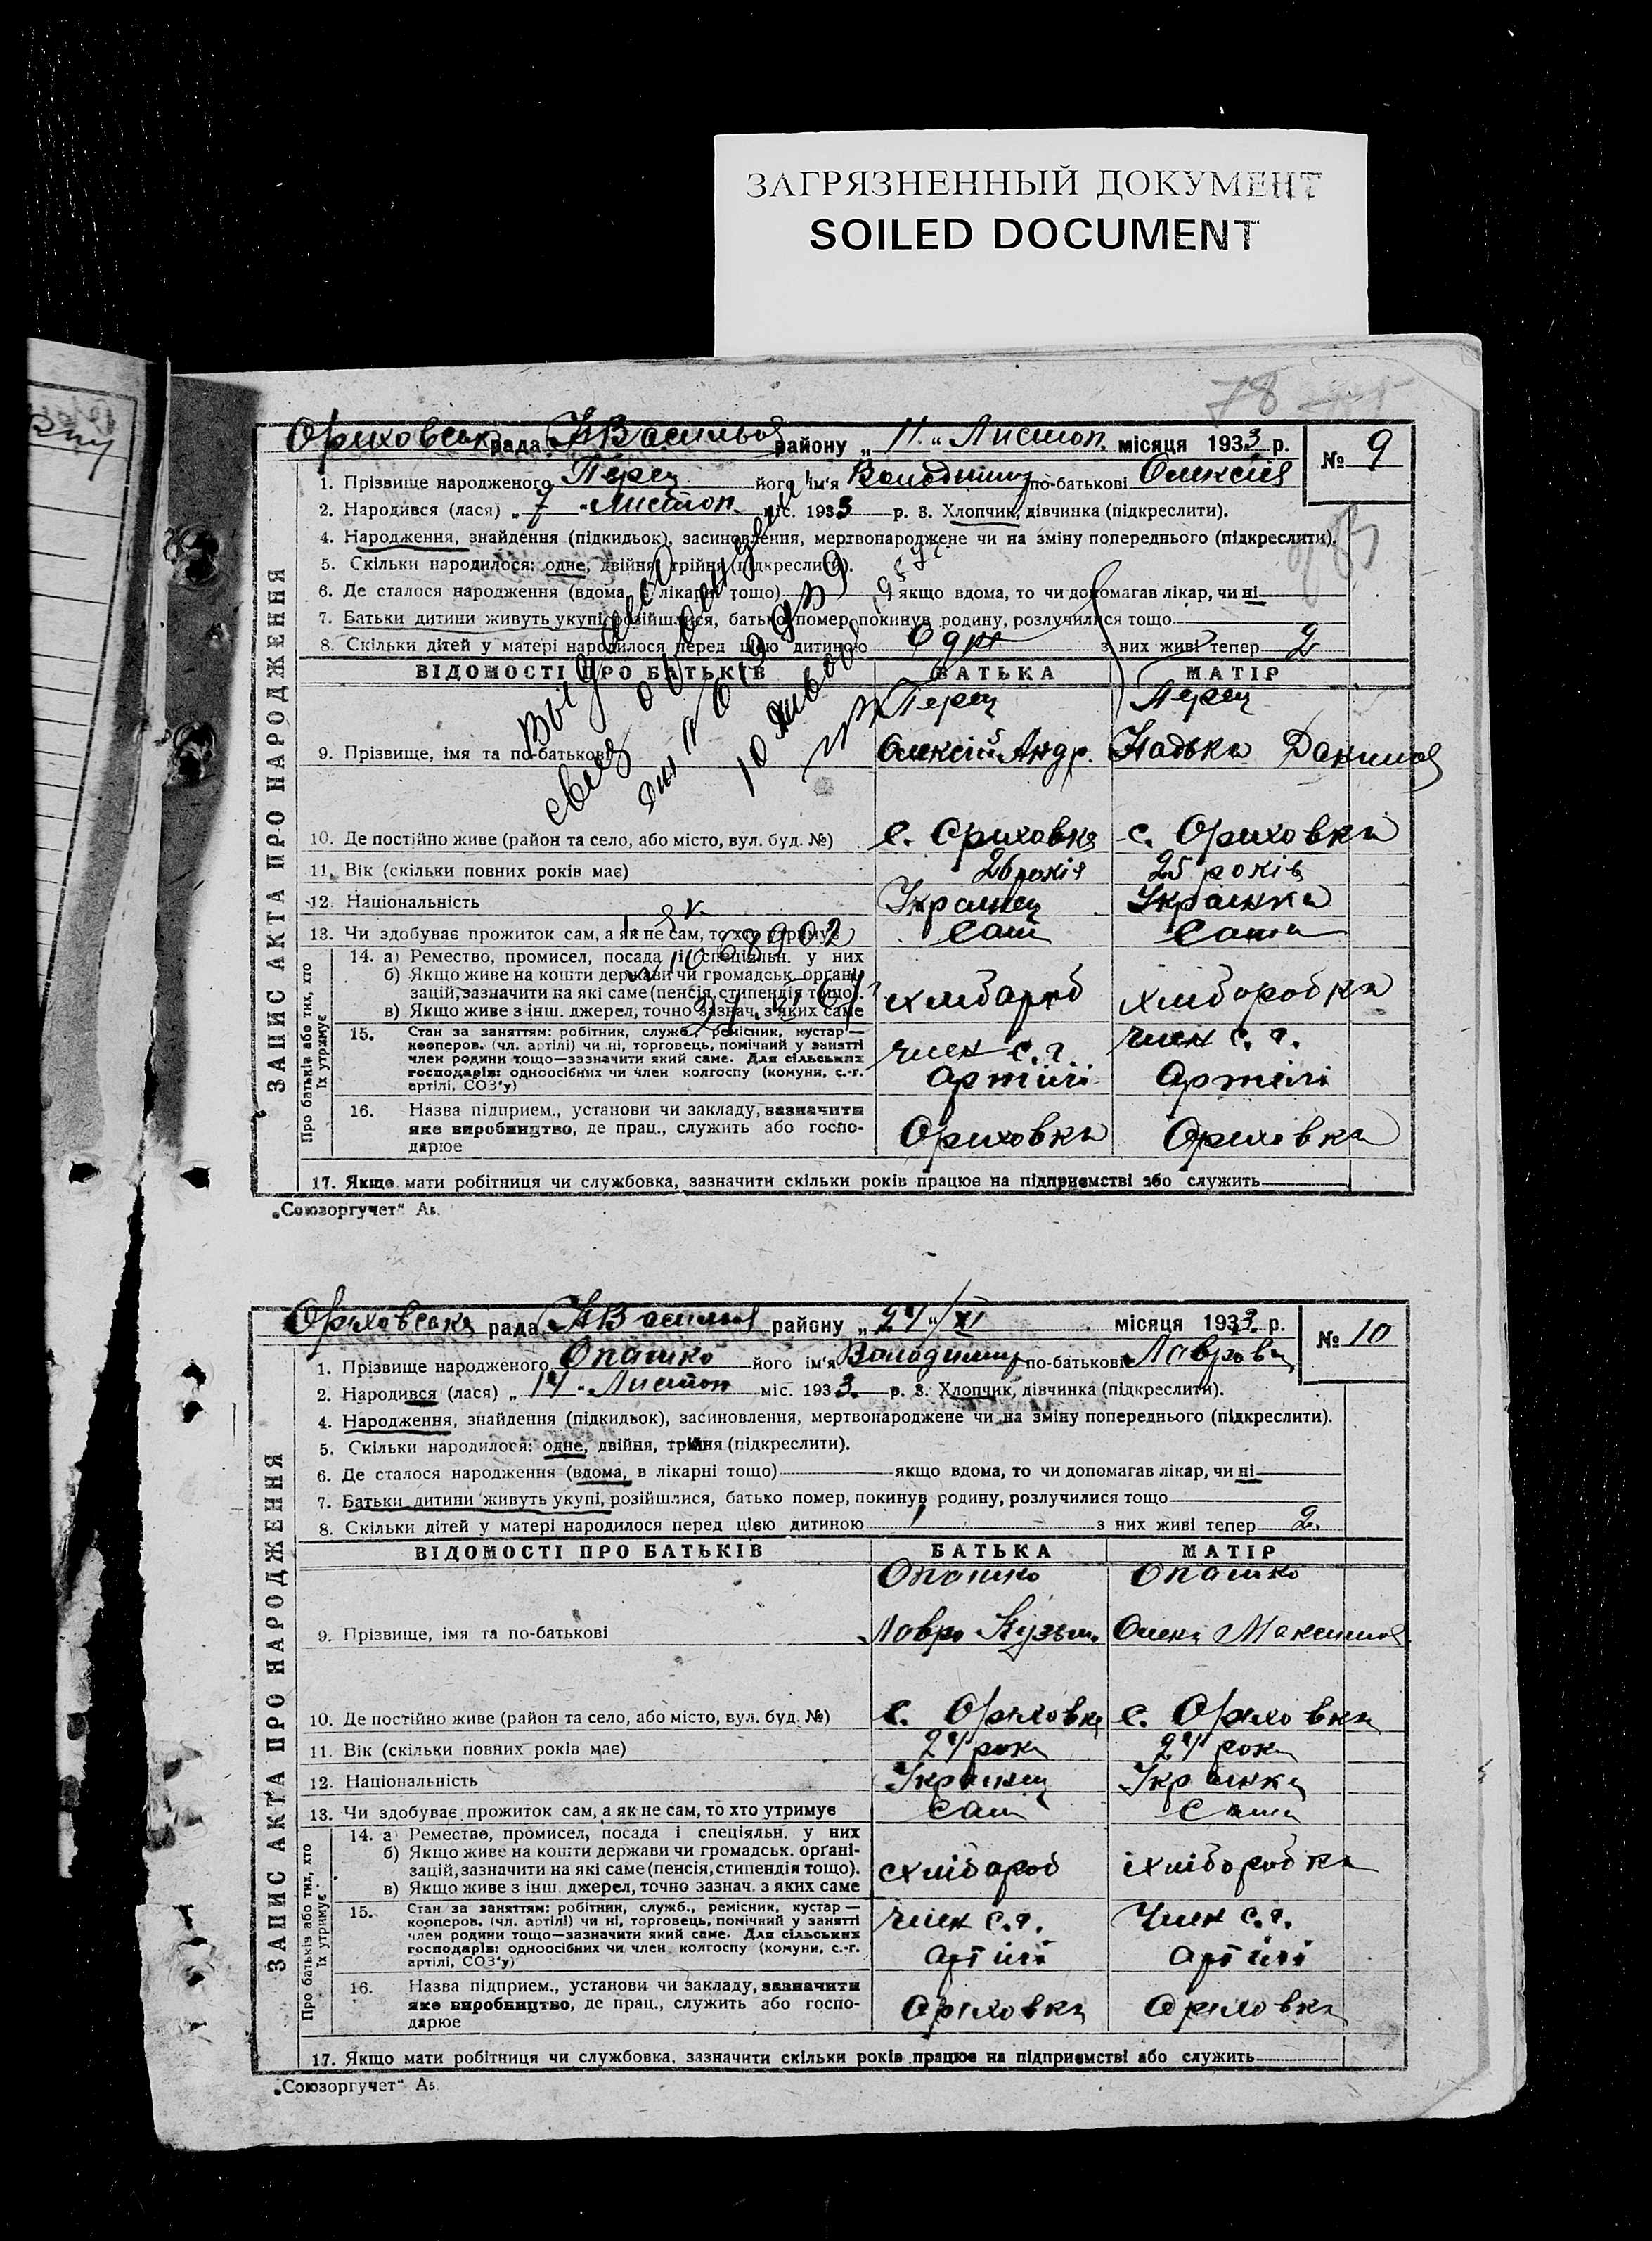 ЗАГРЯЗНЕННЫЙ ДОКУМЕНТ
SOILED DOCUMENT
78
Ориховська рада НВасильів району „11“ Листоп. місяця 1933 р. № 9
ЗАПИС АКТА ПРО НАРОДЖЕННЯ
1. Прізвище народженого Перец його ім'я Володимир по-батькові Олексієв
2. Народився (лася) „7“ Листоп. міс. 1933 р. 3. Хлопчик, дівчинка (підкреслити).
4. Народження, знайдення (підкидьок), засиновлення, мертвонароджене чи на зміну попереднього (підкреслити).
5. Скільки народилося: одне, двійня, трійня (підкреслити).
6. Де сталося народження (вдома, в лікарні тощо) якщо вдома, то чи допомагав лікар, чи ні
7. Батьки дитини живуть укупі, розійшлися, батько помер, покинув родину, розлучилися тощо
8. Скільки дітей у матері народилося перед цією дитиною Одна з них живі тепер 2
ВІДОМОСТІ ПРО БАТЬКІВ БАТЬКА МАТІР
Перец Перец
9. Прізвище, імя та по-батькові Олексій Андр. Надька Данилов
10. Де постійно живе (район та село, або місто, вул. буд. №) с. Ориховка с. Ориховка
11. Вік (скільки повних років має) 26 років 25 років
12. Національність Українец Українка
13. Чи здобуває прожиток сам, а як не сам, то хто утримує Сам Сама
Про батьків або тих, хто їх утримує
14. а) Ремество, промисел, посада і спеціяльн. у них
б) Якщо живе на кошти держави чи громадськ. органі-
зацій, зазначити на які саме (пенсія, стипендія тощо).
в) Якщо живе з інш. джерел, точно зазнач. з яких саме
хліборób хліборобка
15. Стан за заняттям: робітник, служб., ремісник, кустар—
кооперов. (чл. артілі) чи ні, торговець, помічний у занятті
член родини тощо—зазначити який саме. Для сільських
господарів: одноосібних чи член колгоспу (комуни, с.-г.
артілі, СОЗ'у)
член с.г. член с.г.
артілі артілі
16. Назва підприєм., установи чи закладу, зазначити
яке виробництво, де прац., служить або госпо-
дарює
Ориховка Ориховка
17. Якщо мати робітниця чи службовка, зазначити скільки років працює на підприємстві або служить
„Союзоргучет“ А5
Выдано
10
Ориховська рада НВасильів району „24“ XI місяця 1933 р. № 10
ЗАПИС АКТА ПРО НАРОДЖЕННЯ
1. Прізвище народженого Опашко його ім'я Володимир по-батькові Лавров
2. Народився (лася) „14“ Листоп міс. 1933. р. 3. Хлопчик, дівчинка (підкреслити).
4. Народження, знайдення (підкидьок), засиновлення, мертвонароджене чи на зміну попереднього (підкреслити).
5. Скільки народилося: одне, двійня, трійня (підкреслити).
6. Де сталося народження (вдома, в лікарні тощо) якщо вдома, то чи допомагав лікар, чи ні
7. Батьки дитини живуть укупі, розійшлися, батько помер, покинув родину, розлучилися тощо
8. Скільки дітей у матері народилося перед цією дитиною 1 з них живі тепер 2.
ВІДОМОСТІ ПРО БАТЬКІВ БАТЬКА МАТІР
Опашко Опашко
9. Прізвище, імя та по-батькові Лавро Кузьм. Олена Максимов
10. Де постійно живе (район та село, або місто, вул. буд. №) с. Ориховка с. Ориховка
11. Вік (скільки повних років має) 24 роки 24 роки
12. Національність Українец Українка
13. Чи здобуває прожиток сам, а як не сам, то хто утримує Сам Сама
Про батьків або тих, хто їх утримує
14. а) Ремество, промисел, посада і спеціяльн. у них
б) Якщо живе на кошти держави чи громадськ. органі-
зацій, зазначити на які саме (пенсія, стипендія тощо).
в) Якщо живе з інш. джерел, точно зазнач. з яких саме
хлібароб хліборобка
15. Стан за заняттям: робітник, служб., ремісник, кустар—
кооперов. (чл. артілі) чи ні, торговець, помічний у занятті
член родини тощо—зазначити який саме. Для сільських
господарів: одноосібних чи член колгоспу (комуни, с.-г.
артілі, СОЗ'у)
член с.г. член с.г.
артілі артілі
16. Назва підприєм., установи чи закладу, зазначити
яке виробництво, де прац., служить або госпо-
дарює
Ориховка Ориховка
17. Якщо мати робітниця чи службовка, зазначити скільки років працює на підприємстві або служить
„Союзоргучет“ А5